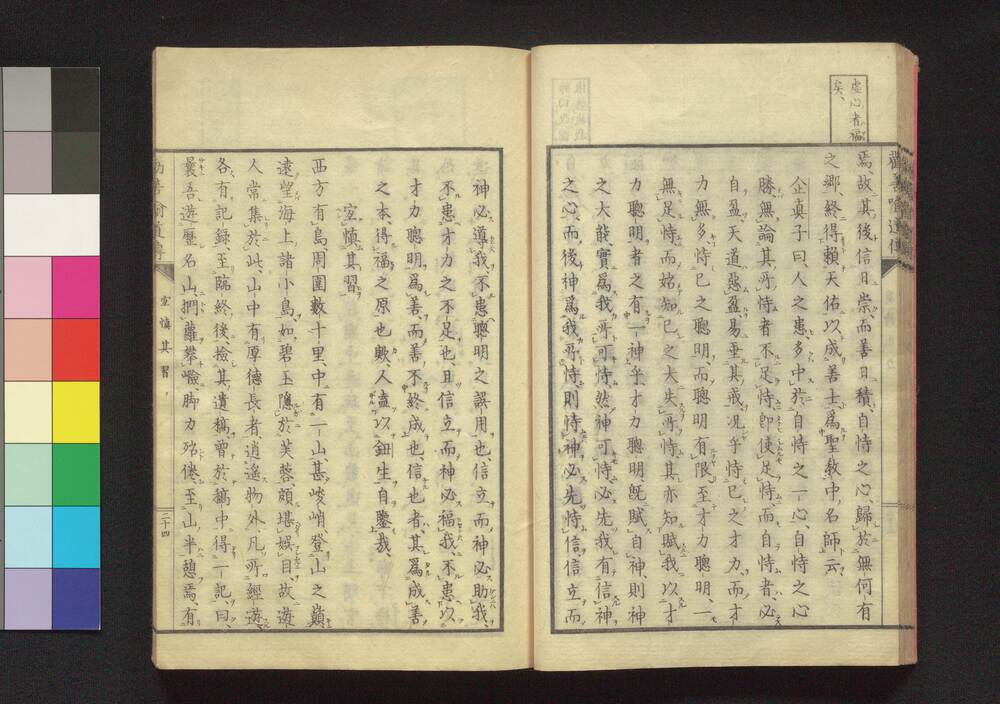 虛心者福
矣、
焉、故其後信日崇、而善日積、自恃之心、歸於無何有
之鄉、終得賴天佑以成善士爲聖敎中名師云、
企眞子曰、人之患、多中於自恃之一心、自恃之心
勝、無論其所恃者不足恃、卽使足恃、而自恃者、必
自盈天道惡盈易垂其戒況乎恃已之才力、而才
力無多、恃已之聰明、而聰明有限、至才力聰明、一
無足恃而始知已之大失所恃其亦知賦我以才
力聰明者之有一神乎、才力聰明旣賦自神、則神
之大能實爲我所可恃、然神可恃必先我有信神
之心、而後神爲我所恃、則恃神必先恃信、信立而
神必導我、不患聰明之誤用也、信立而神必助我、
不患才力之不足也、且信立而神必福我、不患以
才力聰明、爲善、而善不終成也、信也者、其爲成善
之本、得福之原也歟、人盍以鈕生自鑒哉、
宜愼其習
西方有島、周圍數十里、中有一山、甚峻峭、登山之巔
遠望海上諸小島、如碧玉隱於芙蓉、頗堪娛目、故遊
人常集於此、山中有厚德長者、逍遙物外、凡所經遊、
各有記錄、至臨終後、撿其遺稿、曾於稿中得一記、曰、
曩吾遊歷名山、捫蘿攀巉、脚力殆倦、至山半憩焉、有
宜愼其習
二十四